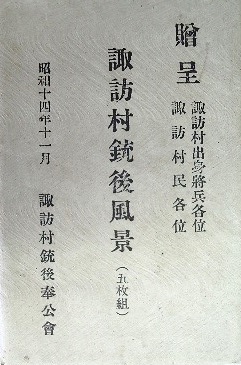 贈呈
諏訪村出身將兵各位
諏訪村民各位
諏訪村銃後風景
(五枚組)
昭和十四年十一月
諏訪村銃後奉公會